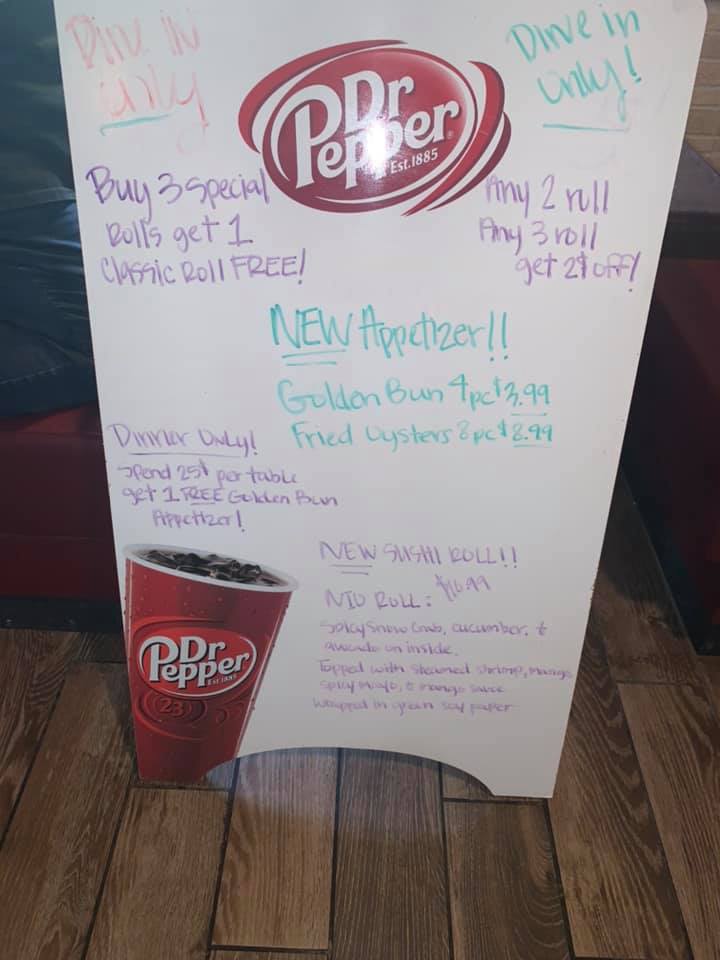 Dine in
only
Dine in
only!
Dr
Pepper
Est.1885
Buy 3 special
Rolls get 1
Classic Roll FREE!
Any 2 roll
Any 3 roll
get 2$ off!
NEW Appetizer!!
Golden Bun 4pc $3.99
Fried Oysters 8pc $8.99
Dinner Only!
Spend 25$ per table
get 1 FREE Golden Bun
Appetizer!
NEW SUSHI ROLL!!
$16.99
NIU ROLL:
Spicy Snow Crab, cucumber, &
avocado on inside.
Topped with steamed shrimp, mango
spicy mayo, & mango sauce
wrapped in green soy paper
Dr
Pepper
Est.1885
23